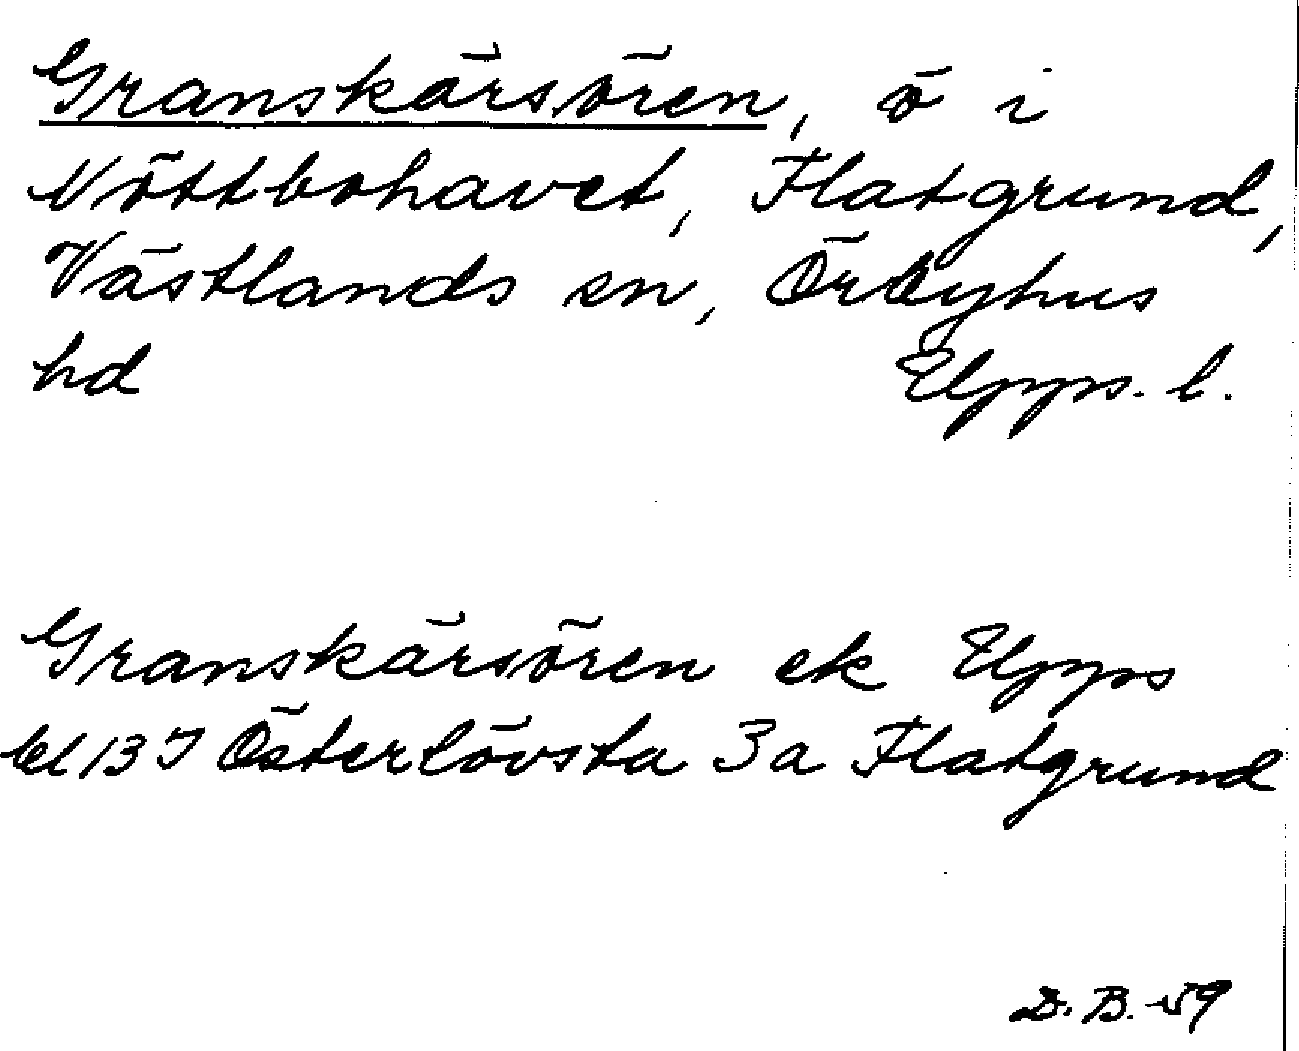 Granskärsören, ö i
Nöttbohavet, Flatgrund,
Västlands sn, Örbyhus
hd Upps. l.
Granskärsören ek Upps
bl 13 I Österlövsta 3a Flatgrund
D. B. 59